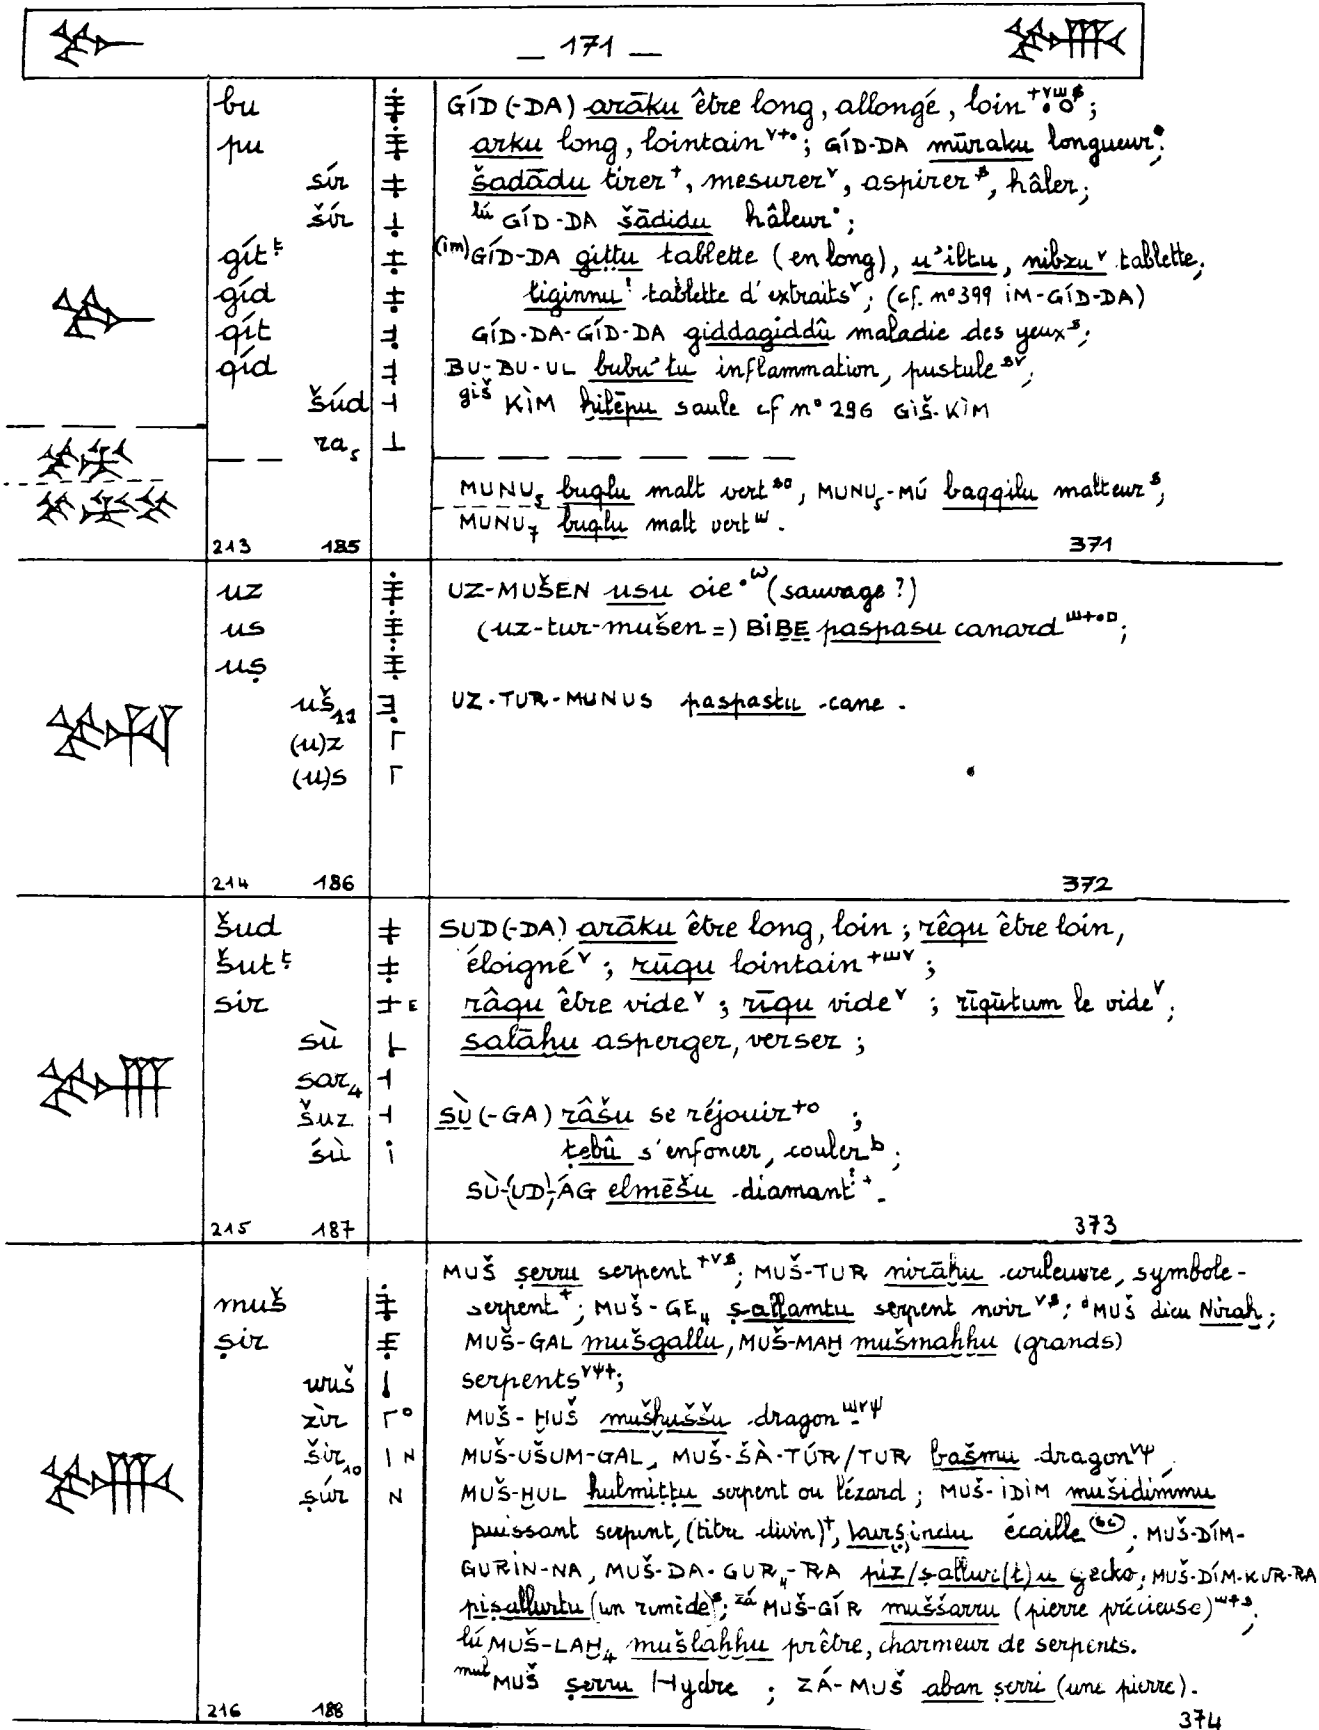 — 171 —
bu GÍD(-DA) arāku être long, allongé, loin;
pu arku long, lointain; GÍD-DA mūraku longueur;
sír šadādu tirer, mesurer, aspirer, hâler;
šír lú GÍD-DA šādidu hâleur;
gít ṭ (im)GÍD-DA giṭṭu tablette (en long), u'iltu, nibzu tablette;
gíd liginnu tablette d'extraits; (cf. n° 399 IM-GÍD-DA)
qít GÍD-DA-GÍD-DA giddagiddû maladie des yeux;
qíd BU-BU-UL bubu'tu inflammation, pustule;
šúd giš KÌM ḫilēpu saule cf n° 296 GIŠ-KÌM
ra₅
MUNU₅ buqlu malt vert, MUNU₅-MÚ baqqilu malteur;
MUNU₇ buqlu malt vert.
213 185 371
uz UZ-MUŠEN usu oie (sauvage?)
us (uz-tur-mušen =) BIBE paspasu canard;
uṣ
uš₁₁ UZ-TUR-MUNUS paspastu cane.
(u)z
(u)s
214 186 372
šud SUD(-DA) arāku être long, loin; rêqu être loin,
šut ṭ éloigné; rūqu lointain;
sir E râqu être vide; rīqu vide; rīqūtum le vide;
sù salāḫu asperger, verser;
sar₄
šuz SÙ(-GA) râšu se réjouir;
śù ṭebû s'enfoncer, couler;
SÙ-(UD)-ÁG elmēšu diamant.
215 187 373
MUŠ ṣerru serpent; MUŠ-TUR nirāḫu couleuvre, symbole-
muš serpent; MUŠ-GE₄ ṣallamtu serpent noir; d MUŠ dieu Niraḫ;
ṣir MUŠ-GAL mušgallu, MUŠ-MAḪ mušmaḫḫu (grands)
wuš serpents;
zìr MUŠ-ḪUŠ mušḫuššu dragon
šir₁₀ N MUŠ-UŠUM-GAL, MUŠ-ŠÀ-TÚR/TUR bašmu dragon,
ṣúr N MUŠ-ḪUL ḫulmiṭṭu serpent ou lézard; MUŠ-IDIM mušidimmu
puissant serpent, (titre divin), écaille; MUŠ-DÍM-
GURIN-NA, MUŠ-DA-GUR₄-RA piz/ṣalluri(t)u gecko; MUŠ-DÍM-KUR-RA
piṣallurtu; zá MUŠ-GÍR muššarru (pierre précieuse);
lú MUŠ-LAḪ₄ mušlaḫḫu prêtre, charmeur de serpents.
mul MUŠ ṣerru Hydre; ZÁ-MUŠ aban ṣerri (une pierre).
216 188 374